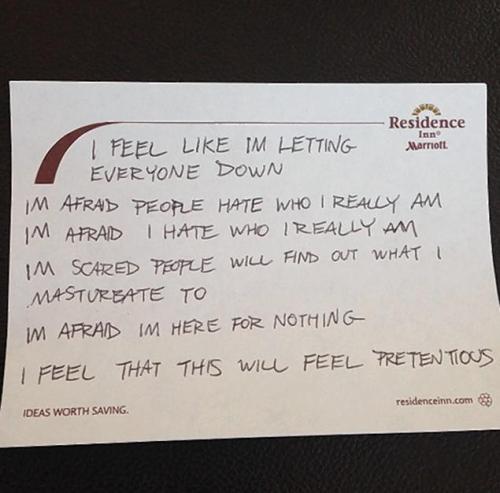 Residence
Inn®
Marriott
I FEEL LIKE IM LETTING
EVERYONE DOWN
IM AFRAID PEOPLE HATE WHO I REALLY AM
IM AFRAID I HATE WHO I REALLY AM
IM SCARED PEOPLE WILL FIND OUT WHAT I
MASTURBATE TO
IM AFRAID IM HERE FOR NOTHING
I FEEL THAT THIS WILL FEEL PRETENTIOUS
IDEAS WORTH SAVING.
residenceinn.com